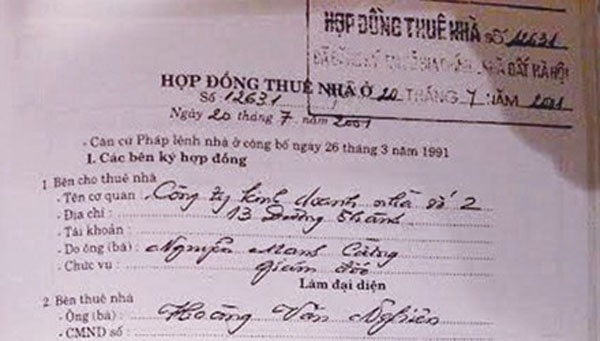 HỢP ĐỒNG THUÊ NHÀ SỐ 12631
ĐÃ ĐĂNG KÝ NHÀ ĐẤT HÀ NỘI
20 THÁNG 7 NĂM 2001
HỢP ĐỒNG THUÊ NHÀ Ở
Số: 12631
Ngày 20 tháng 7 năm 2001
- Căn cứ Pháp lệnh nhà ở công bố ngày 26 tháng 3 năm 1991
I. Các bên ký hợp đồng
1. Bên cho thuê nhà
- Tên cơ quan: Công ty kinh doanh nhà số 2
- Địa chỉ: 13 Đường Thành
- Tài khoản:
- Do ông (bà): Nguyễn Mạnh
- Chức vụ: Giám đốc
Làm đại diện
2. Bên thuê nhà
- Ông (bà): Hoàng Văn Nghiên
- CMND số: